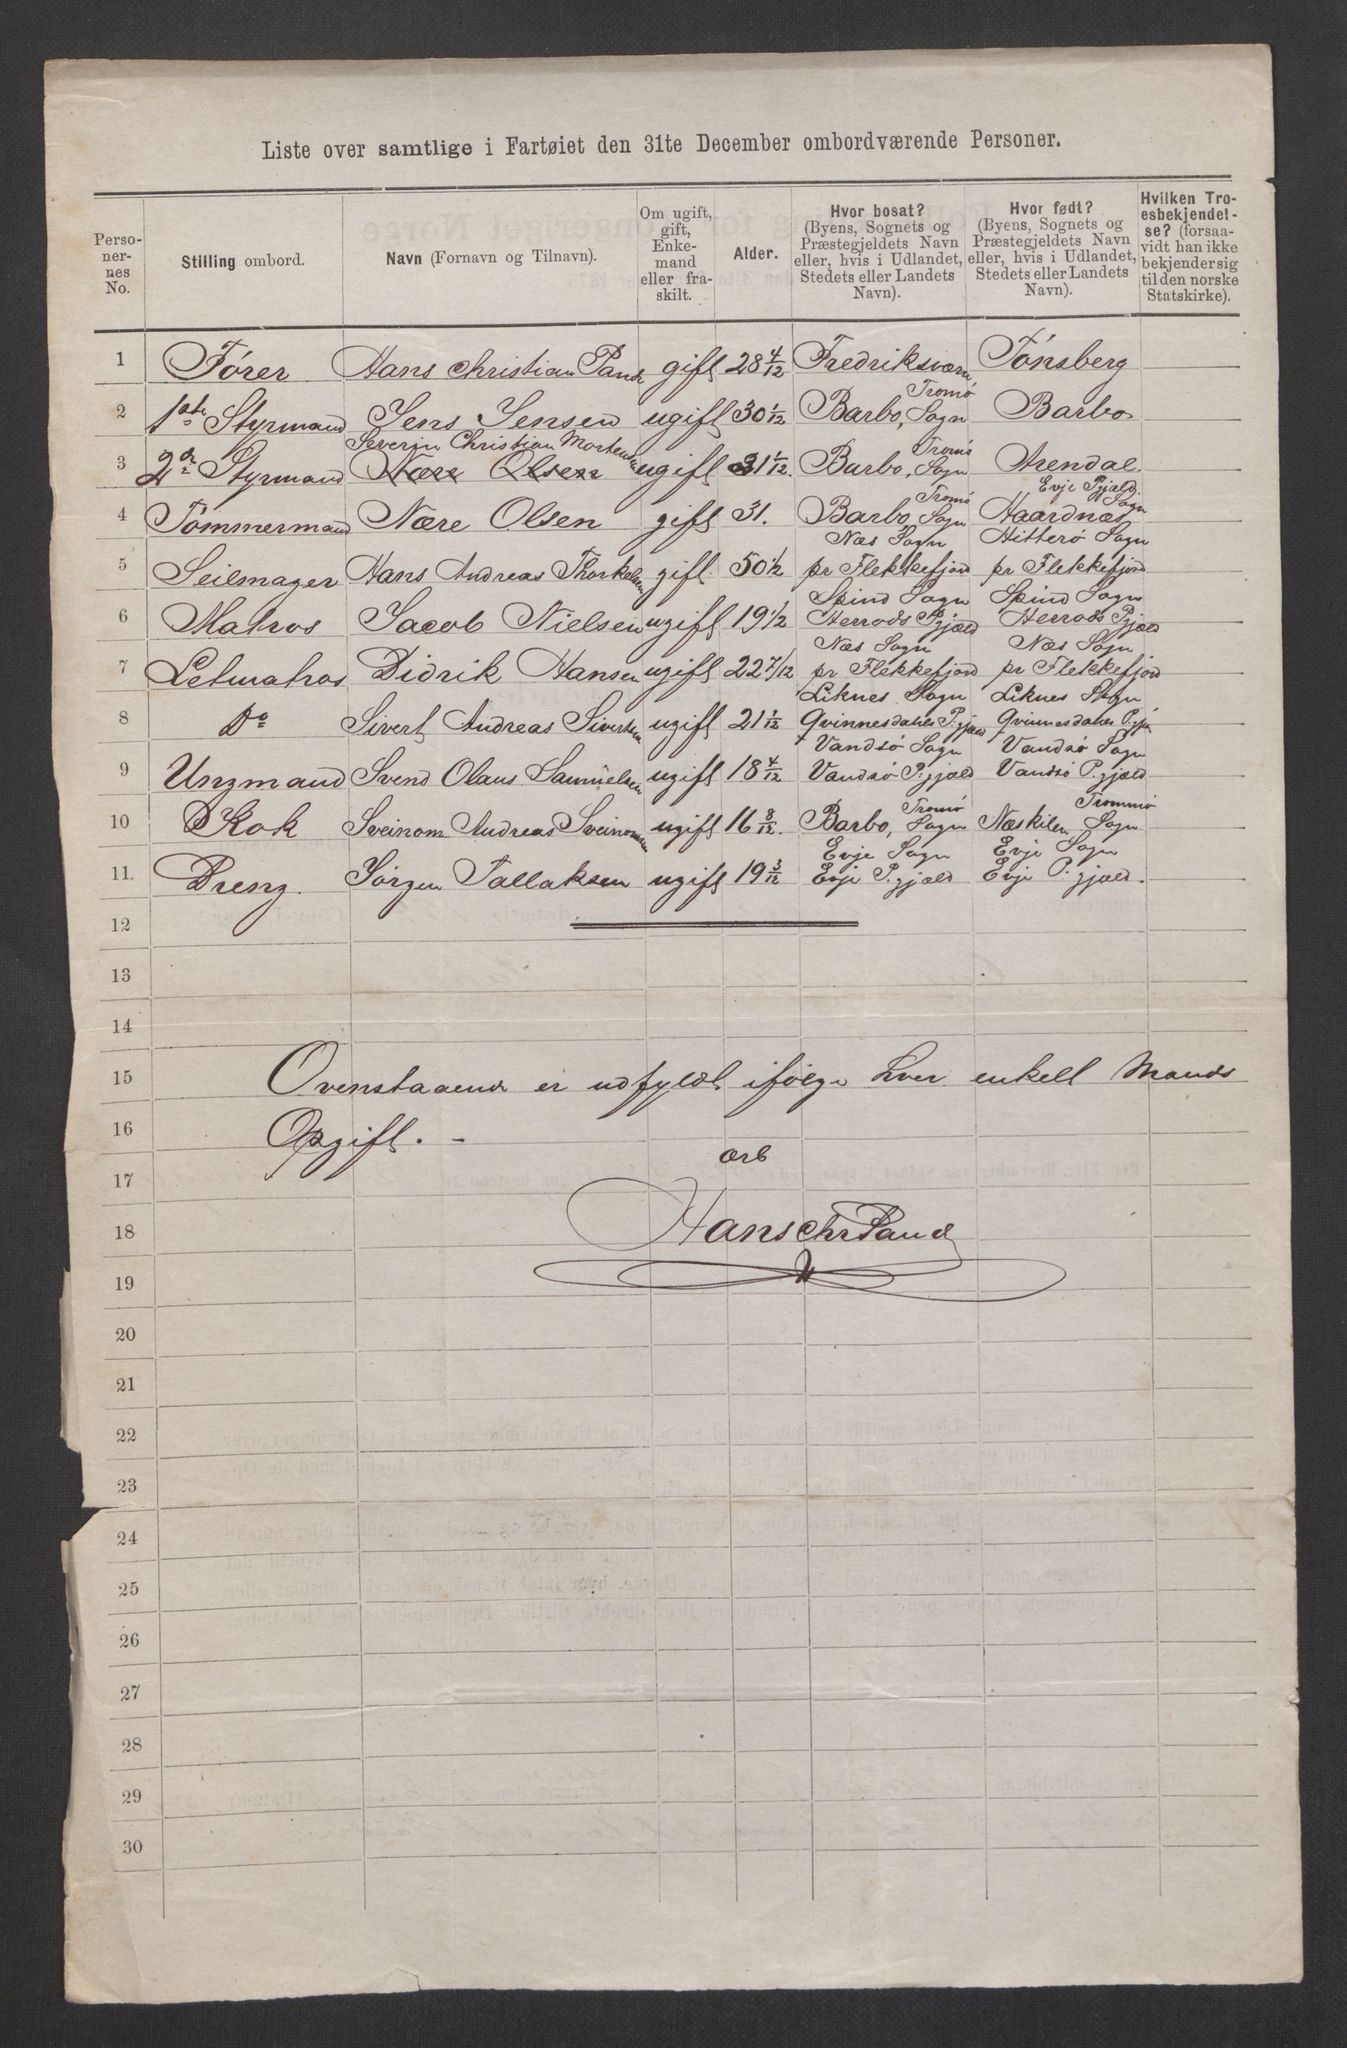 Liste over samtlige i Fartøiet den 31te December ombordværende Personer.
Perso-
ner-
nes
No.
Stilling ombord.
Navn (Fornavn og Tilnavn).
Om ugift,
gift,
Enke-
mand
eller fra-
skilt.
Alder.
Hvor bosat?
(Byens, Sognets og
Præstegjeldets Navn
eller, hvis i Udlandet,
Stedets eller Landets
Navn).
Hvor født?
(Byens, Sognets og
Præstegjeldets Navn
eller, hvis i Udlandet,
Stedets eller Landets
Navn).
Hvilken Tro-
esbekjendel-
se? (forsaa-
vidt han ikke
bekjender sig
til den norske
Statskirke).
1 Fører Hans Christian Pande gift 28 4/12 Fredriksværn Tønsberg
Tromø
2 1ste Styrmand Jens Jensen ugift 30 1/12 Barbo, Sogn Barbo
Severin Christian Mortensen Tromø
3 2den Styrmand Nære Olsen ugift 21 1/12. Barbo, Sogn Arendal.
Tromø Evje Pgjæld.
4 Tømmermand Nære Olsen gift 31. Barbo, Sogn Haardnæs Sogn
Næs Sogn Hitterø Sogn
5 Seilmager Hans Andreas Thorkelsen gift. 50 1/2 pr Flekkefjord pr Flekkefjord
Spind Sogn Spind Sogn
6 Matros Jacob Nielsen ugift 19 1/2 Herrods Pgjæld Herrods Pgjæld
Næs Sogn Næs Sogn
7 Letmatros Didrik Hansen ugift 22 7/12 pr Flekkefjord pr Flekkefjord
Liknes Sogn Liknes Sogn
8 Do Sivert Andreas Sivertsen ugift 21 1/12 Qvinnesdahls P.gjæld Qvinnesdahls P.gjæ
Vandsø Sogn Vandsø Sogn
9 Ungmand Svend Olaus Samuelsen ugift 18 4/12 Vandsø P.gjæld Vandsø P.gjæld
Tromø Trommø
10 Kok Sveinom Andreas Sveinomsen ugift 16 8/12. Barbo, Sogn Næskilen Sogn
Evje Sogn Evje Sogn
11. Dreng. Jørgen Tallaksen ugift 19 3/12 Evje P.gjæld Evje P.gjæld.
12
13
14
15 Ovenstaaende er udfyldt ifølge hver enkelt Mands
16 Opgift. -
ærb
17
18 Hans Chr Pande
19
20
21
22
23
24
25
26
27
28
29
30